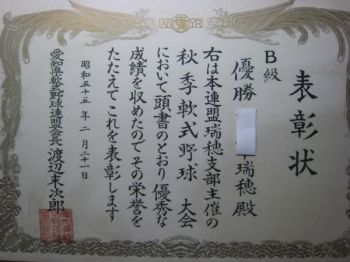 表彰状
B級
優勝 瑞穂殿
右は本連盟瑞穂支部主催の
秋季軟式野球 大会
において頭書のとおり優秀な
成績を収めたのでその栄誉を
たたえてこれを表彰します
昭和五十五年二月二十一日
愛知県軟式野球連盟会長 渡辺末次郎